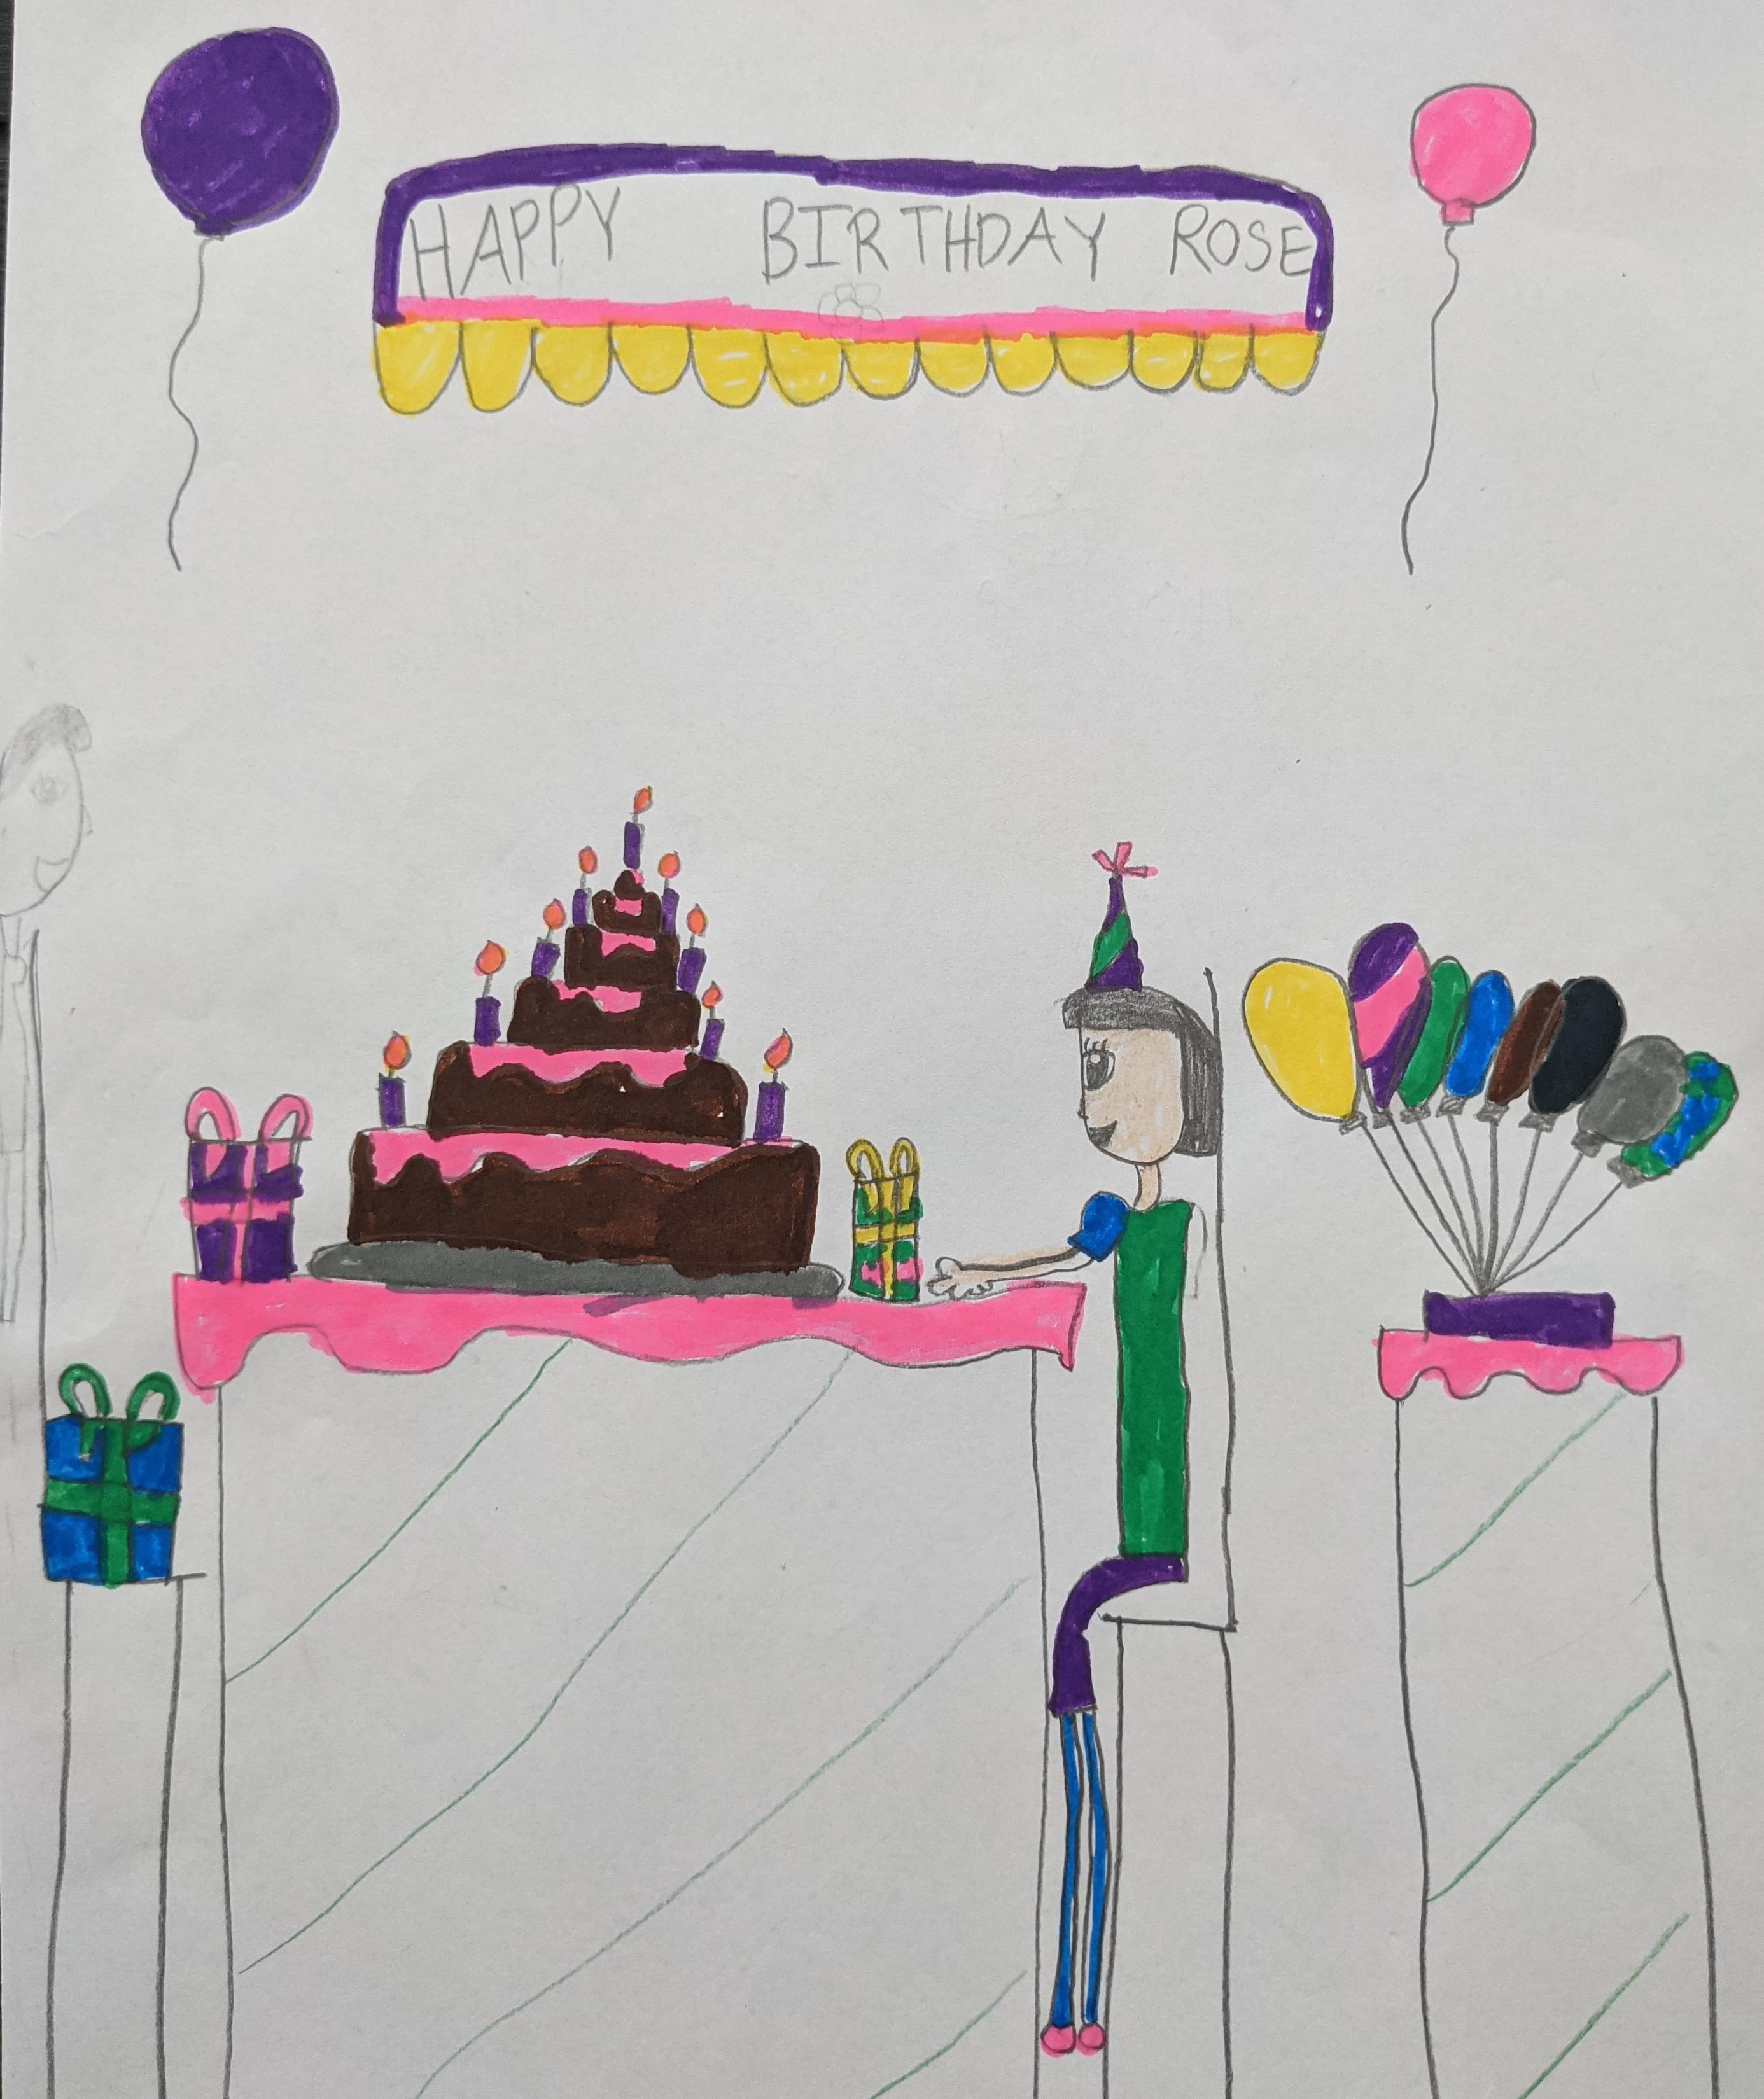 HAPPY BIRTHDAY ROSE